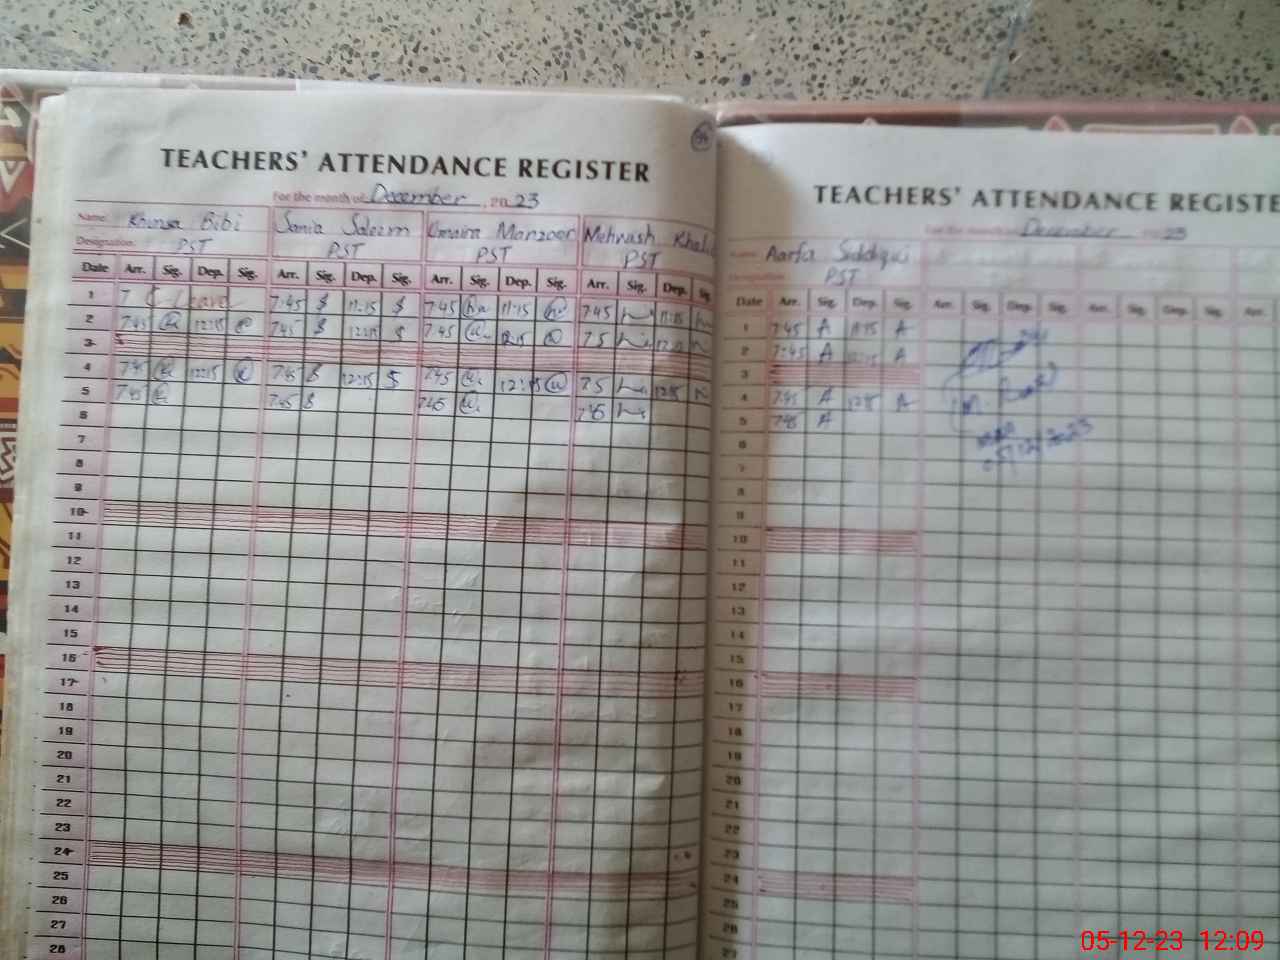 TEACHERS' ATTENDANCE REGISTER
For the month of December, 2023
Name: Khunsa Bibi Sania Saleem Umaira Manzoor Mehwash Khalid
Designation PST PST PST PST
Date Arr. Sig. Dep. Sig. Arr. Sig. Dep. Sig. Arr. Sig. Dep. Sig. Arr. Sig. Dep. Sig.
1 Leave 7:45 11:15 7:45 11:15 7:45 11:15
2 7:45 12:15 7:45 12:15 7:45 12:15
3
4 7:45 12:15 7:45 12:15 7:45 12:15 12:15
5 7:45 7:45 7:45 7:45
6
7
8
9
10
11
12
13
14
15
16
17
18
19
20
21
22
23
24
25
26
27
28
TEACHERS' ATTENDANCE REGISTE
For the month of December 2023
Name: Aarfa Siddiqui
Designation PST
Date Arr. Sig. Dep. Sig. Arr. Sig. Dep. Sig. Arr. Sig. Dep. Sig. Arr.
1 7:45 A 11:15 A
2 7:45 A 12:15 A
3
4 7:45 A 12:15 A
5 7:45 A
6
7
8
9
10
11
12
13
14
15
16
17
18
19
20
21
22
23
24
25
26
27
05-12-23 12:09